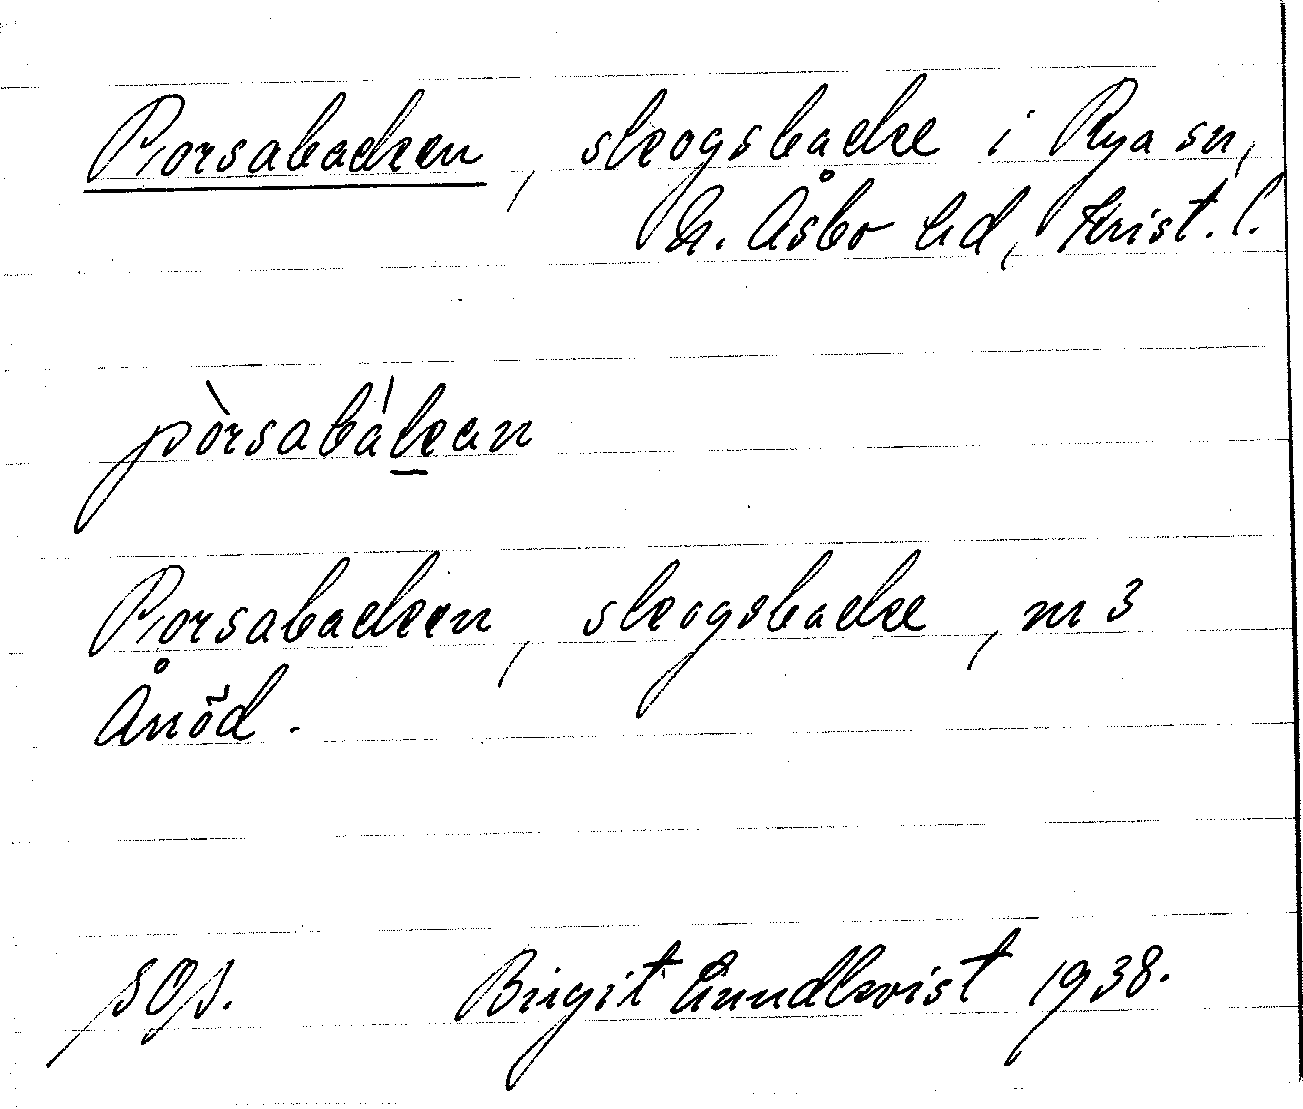 Porsabacken, skogsbacke i Rya sn,
N. Åsbo hd, Krist. l.
pòrsabákan
Porsabacken, skogsbacke, m 3
Ånöd.
Birgit Lundkvist 1938.